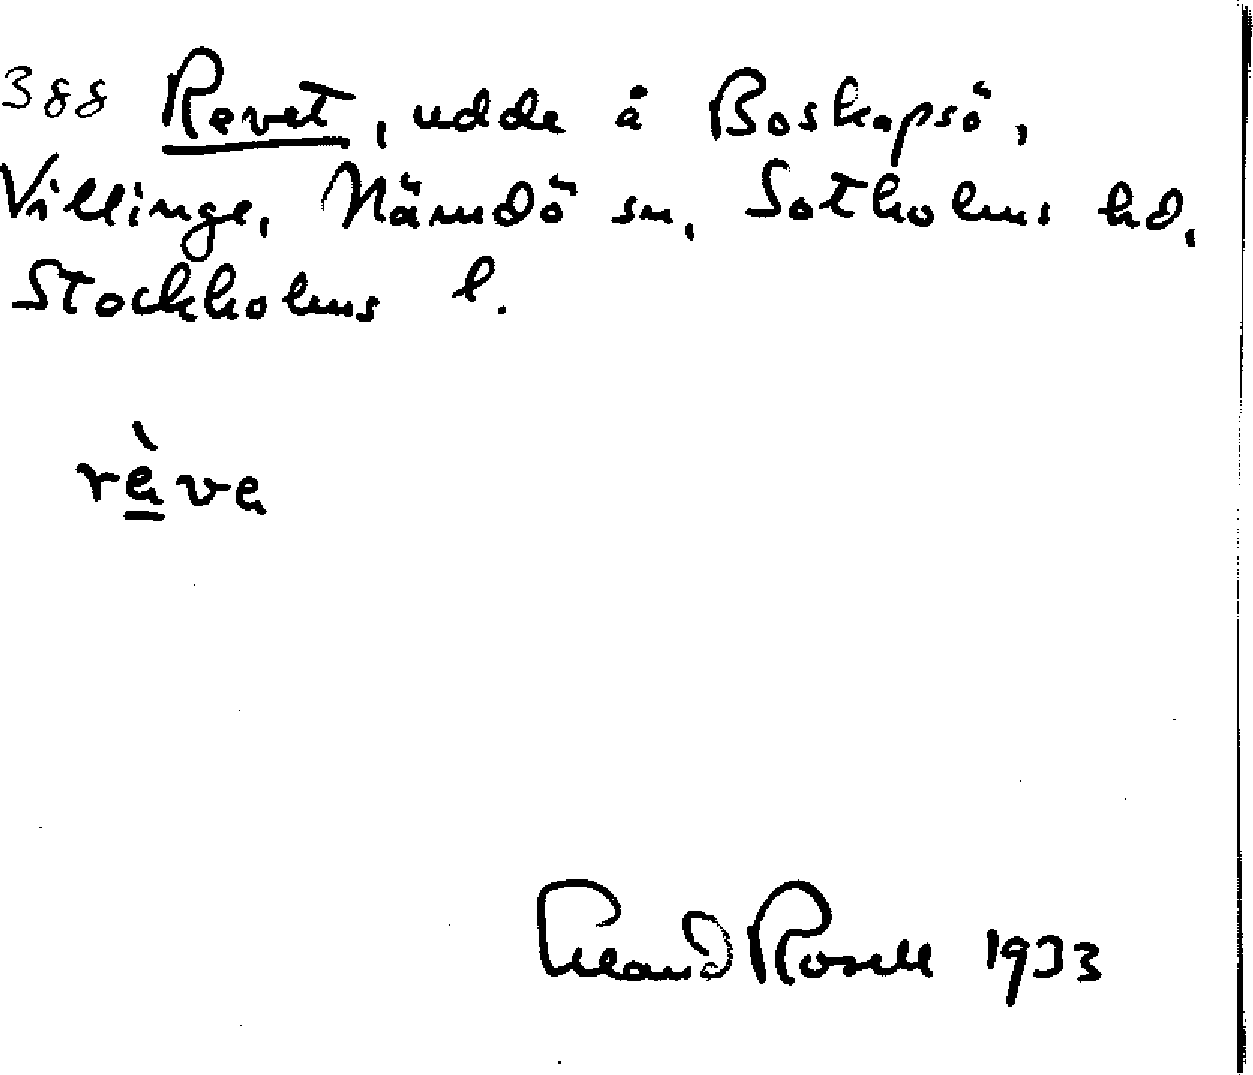 388 Revet, udde å Boskapsö,
Villinge, Nämdö sn, Sotholms hd,
Stockholms l.
rèva
Erland Rosell 1933